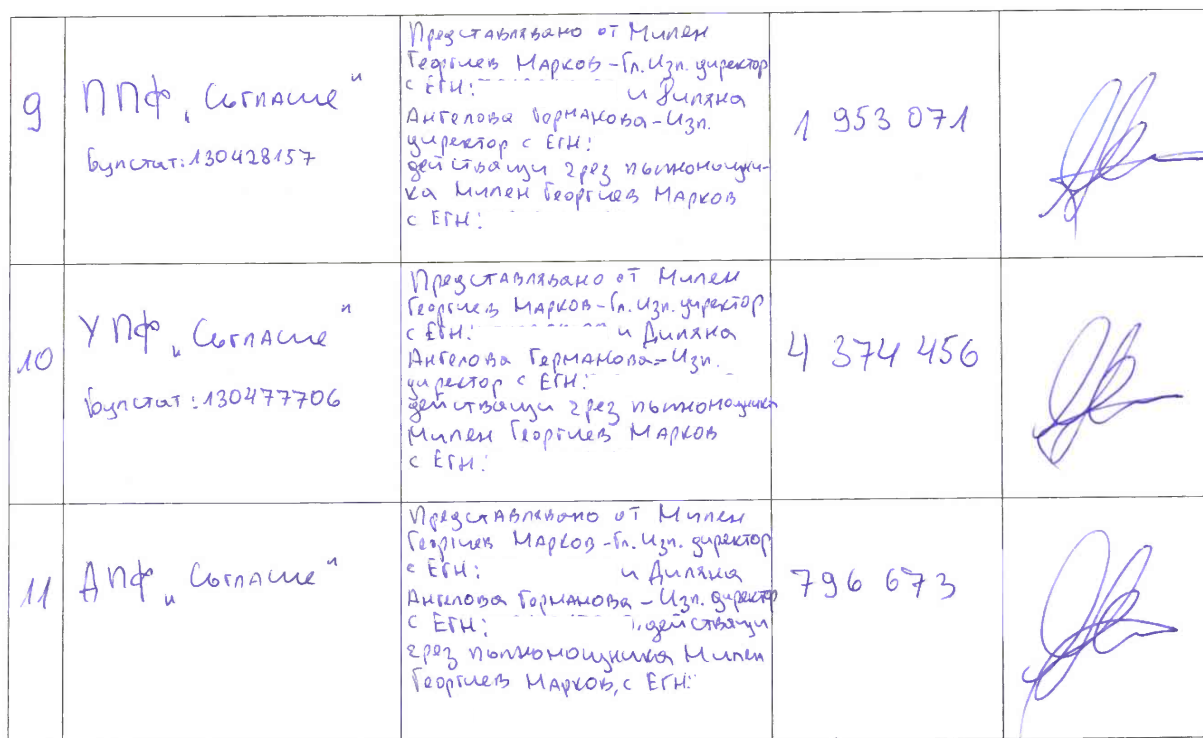 9
ППФ „Съгласие"
Булстат: 130428157
Представлявано от Милен
Георгиев Марков - Гл. Изп. директор
с ЕГН: и Диляна
Ангелова Германова - Изп.
директор с ЕГН:
действащи чрез пълномощни-
ка Милен Георгиев Марков
с ЕГН:
1 953 071
10
УПФ „Съгласие"
Булстат: 130477706
Представлявано от Милен
Георгиев Марков - Гл. Изп. директор
с ЕГН: и Диляна
Ангелова Германова - Изп.
директор с ЕГН:
действащи чрез пълномощника
Милен Георгиев Марков
с ЕГН:
4 374 456
11
ДПФ „Съгласие"
Представлявано от Милен
Георгиев Марков - Гл. Изп. директор
с ЕГН: и Диляна
Ангелова Германова - Изп. директор
с ЕГН: , действащи
чрез пълномощника Милен
Георгиев Марков, с ЕГН:
796 673